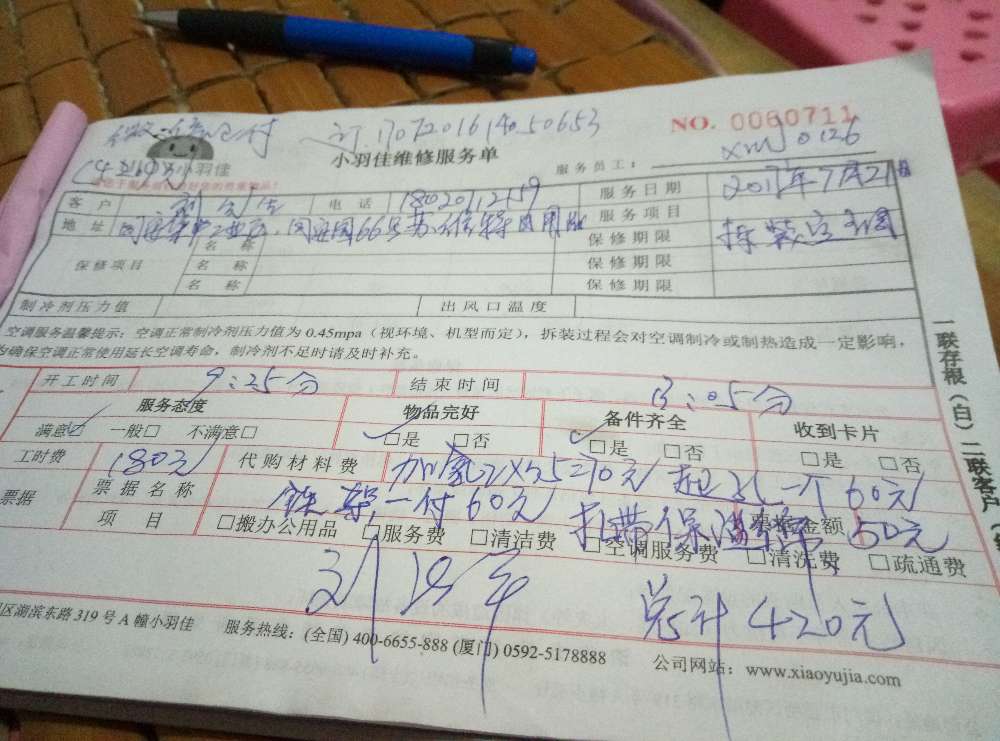 微信已付 订170720161405​0653 NO. 0060711
小羽佳
小羽佳维修服务单 服务员工: xmJ0126
客户 电话 18020712159 服务日期 2017年7月21日
地址 服务项目 拆装空调
保修项目 名称 保修期限
名称 保修期限
名称 保修期限
制冷剂压力值 出风口温度
空调服务温馨提示:空调正常制冷剂压力值为 0.45mpa(视环境、机型而定),拆装过程会对空调制冷或制热造成一定影响,
为确保空调正常使用延长空调寿命,制冷剂不足时请及时补充。
开工时间 9:25分 结束时间 13:05分
服务态度 物品完好 备件齐全 收到卡片
满意☑ 一般□ 不满意□ ☑是 □否 ☑是 □否 □是 □否
工时费 180元 代购材料费 加氟 70元 孔一个60元
票据 票据名称 铁架一付60元 扎带保温棉 金额 50元
项目 □搬办公用品 □服务费 □清洁费 □空调服务费 □清洗费 □疏通费
总计420元
区湖滨东路 319 号 A 幢小羽佳 服务热线:(全国) 400-6655-888 (厦门) 0592-5178888 公司网站:www.xiaoyujia.com
一联存根(白)二联客户